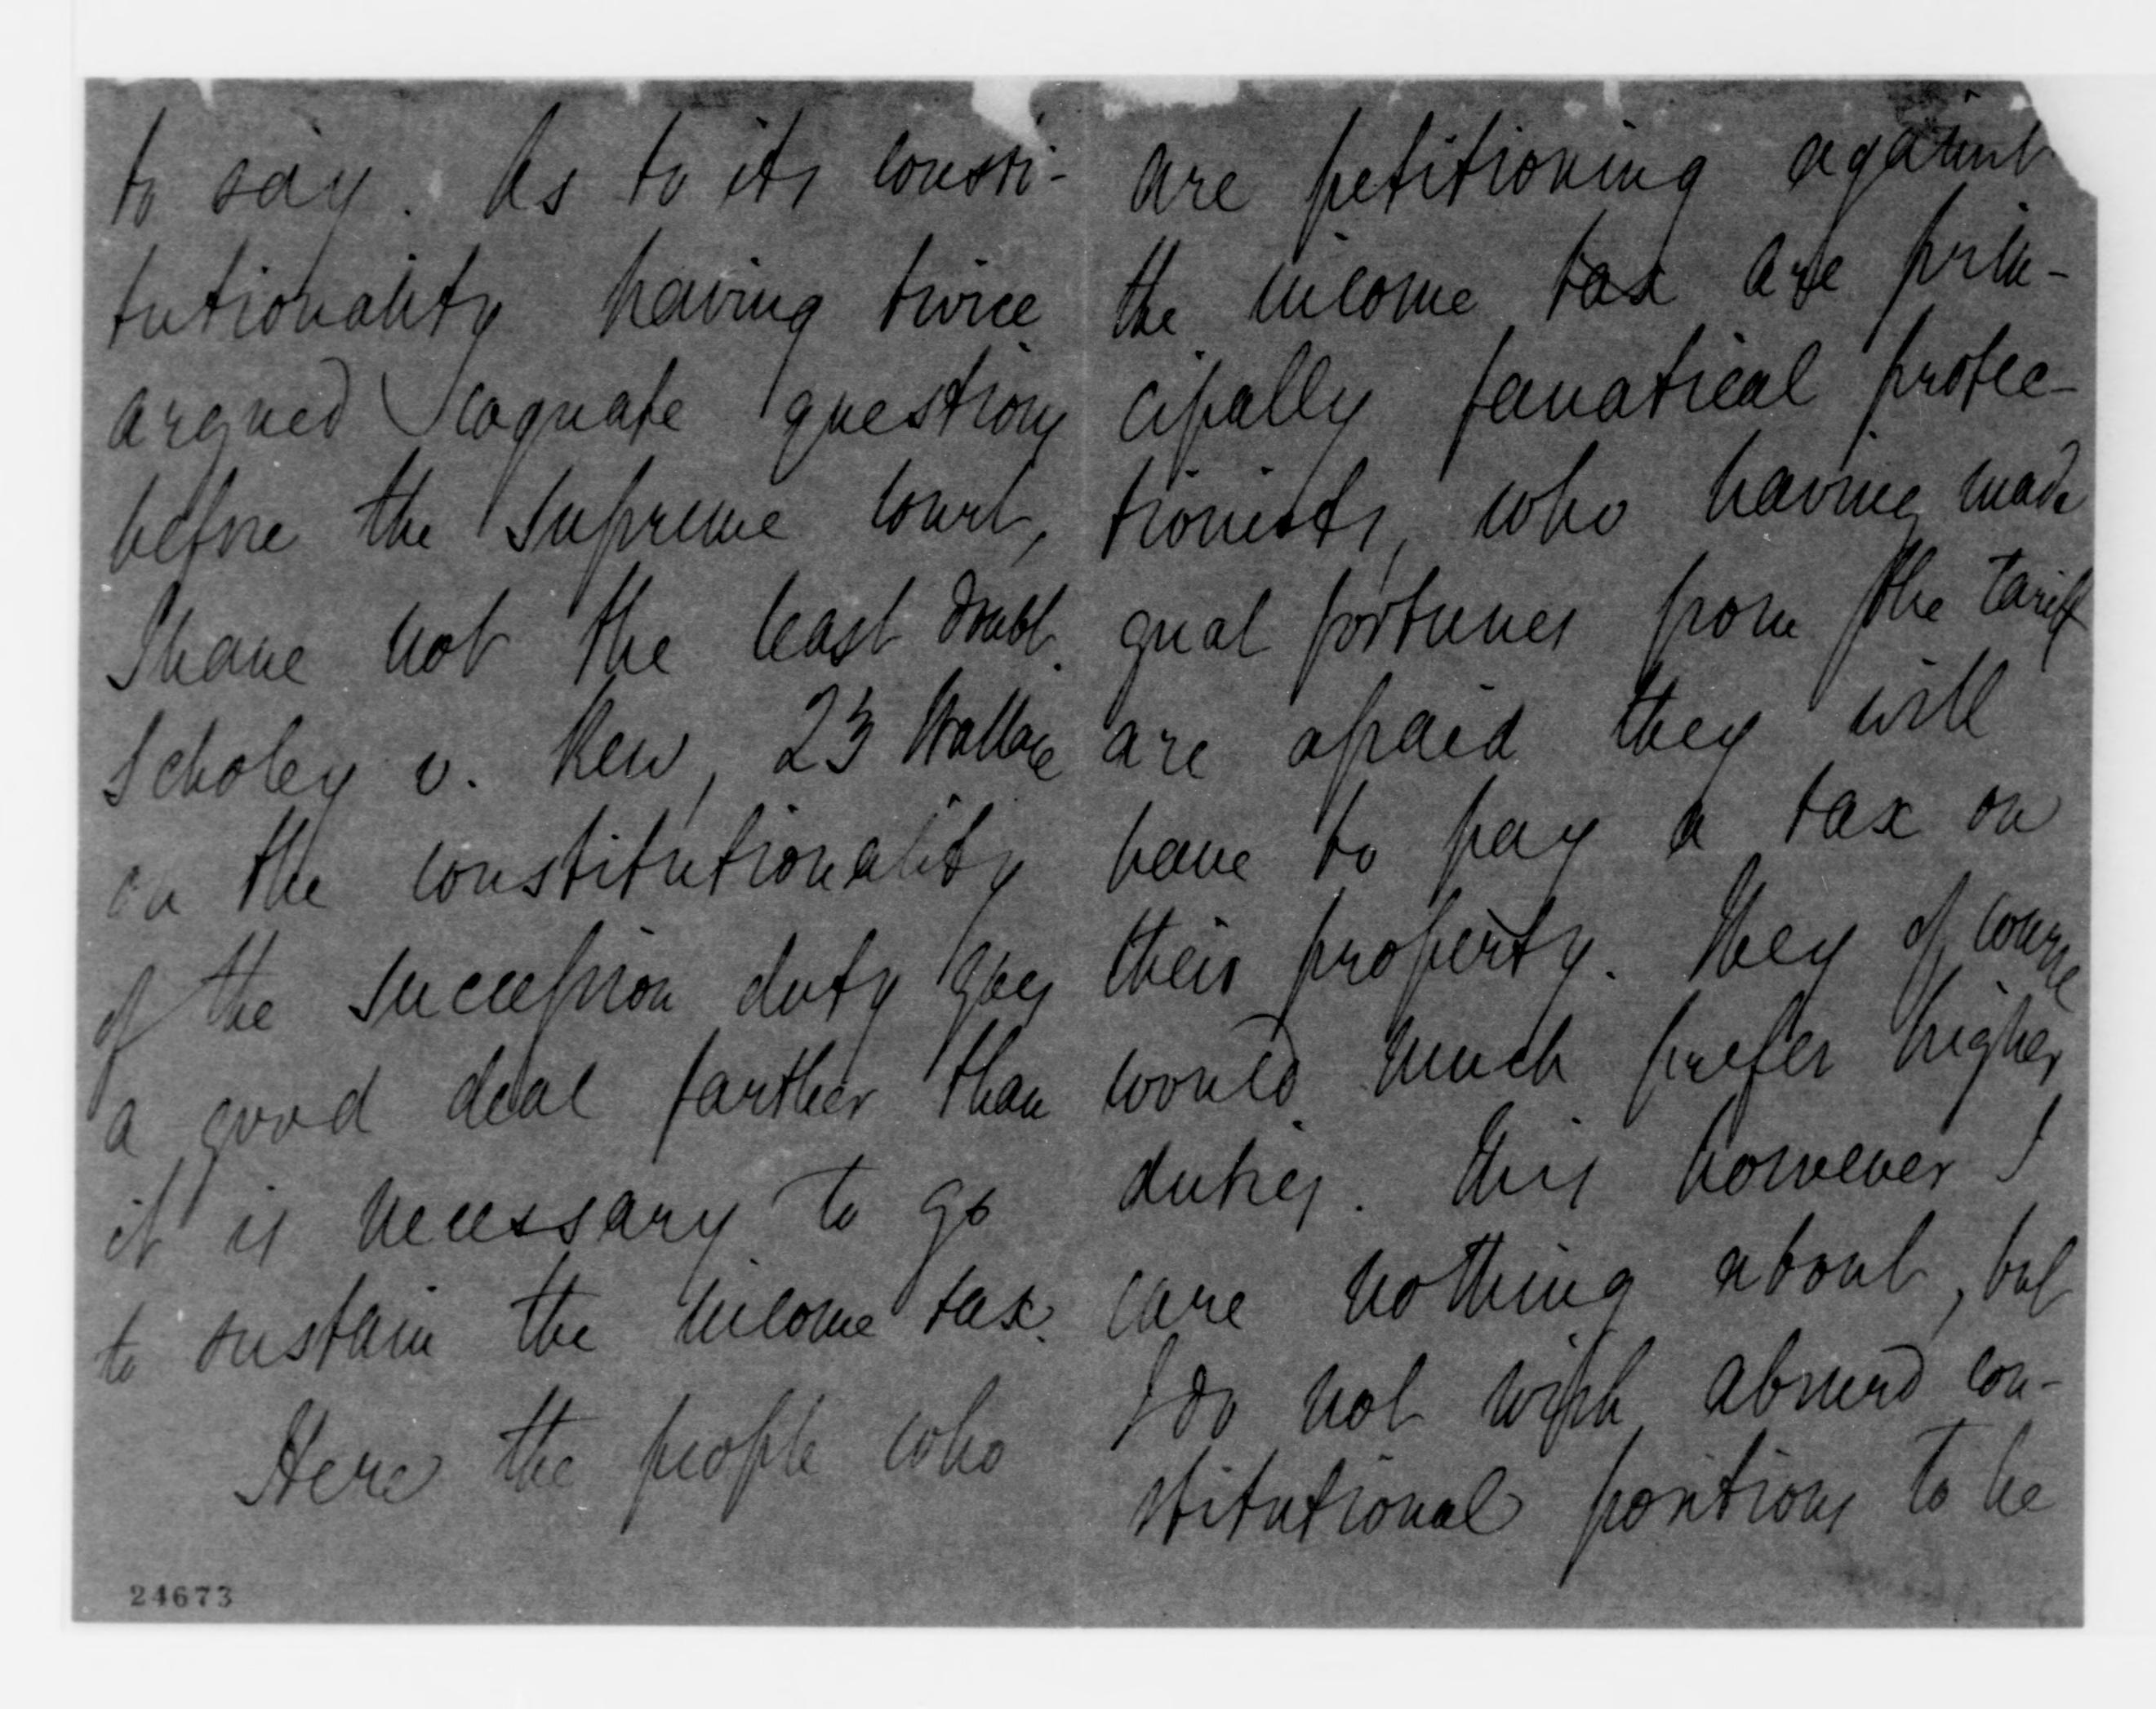 to say. As to its consti-
tutionality having twice
argued cognate questions
before the Supreme Court,
I have not the least doubt.
Scholey v. Rew, 23 Wallace
on the constitutionality
of the succession duty goes
a good deal farther than
it is necessary to go
to sustain the income tax.
Here the people who
24673
are petitioning against
the income tax are prin-
cipally fanatical protec-
tionists, who having made
great fortunes from the tariff
are afraid they will
have to pay a tax on
their property. They of course
would much prefer higher
duties. This however I
care nothing about, but
I do not wish absurd con-
stitutional positions to be